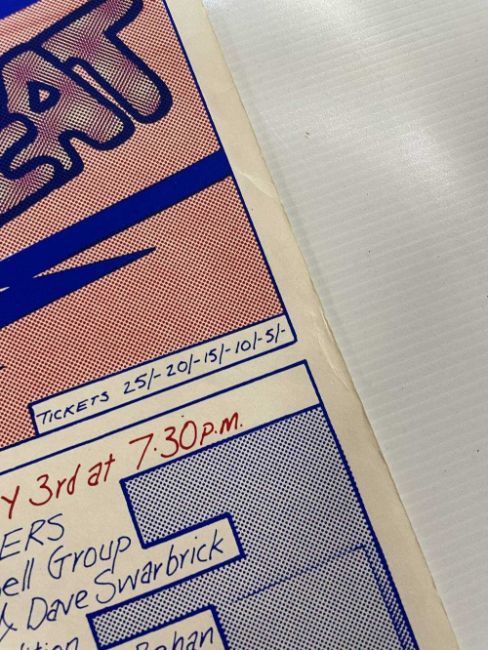 EAT
TICKETS 25/- 20/- 15/- 10/- 5/-
Y 3rd at 7.30p.m.
ERS
ell Group
& Dave Swarbrick
dition Bohan